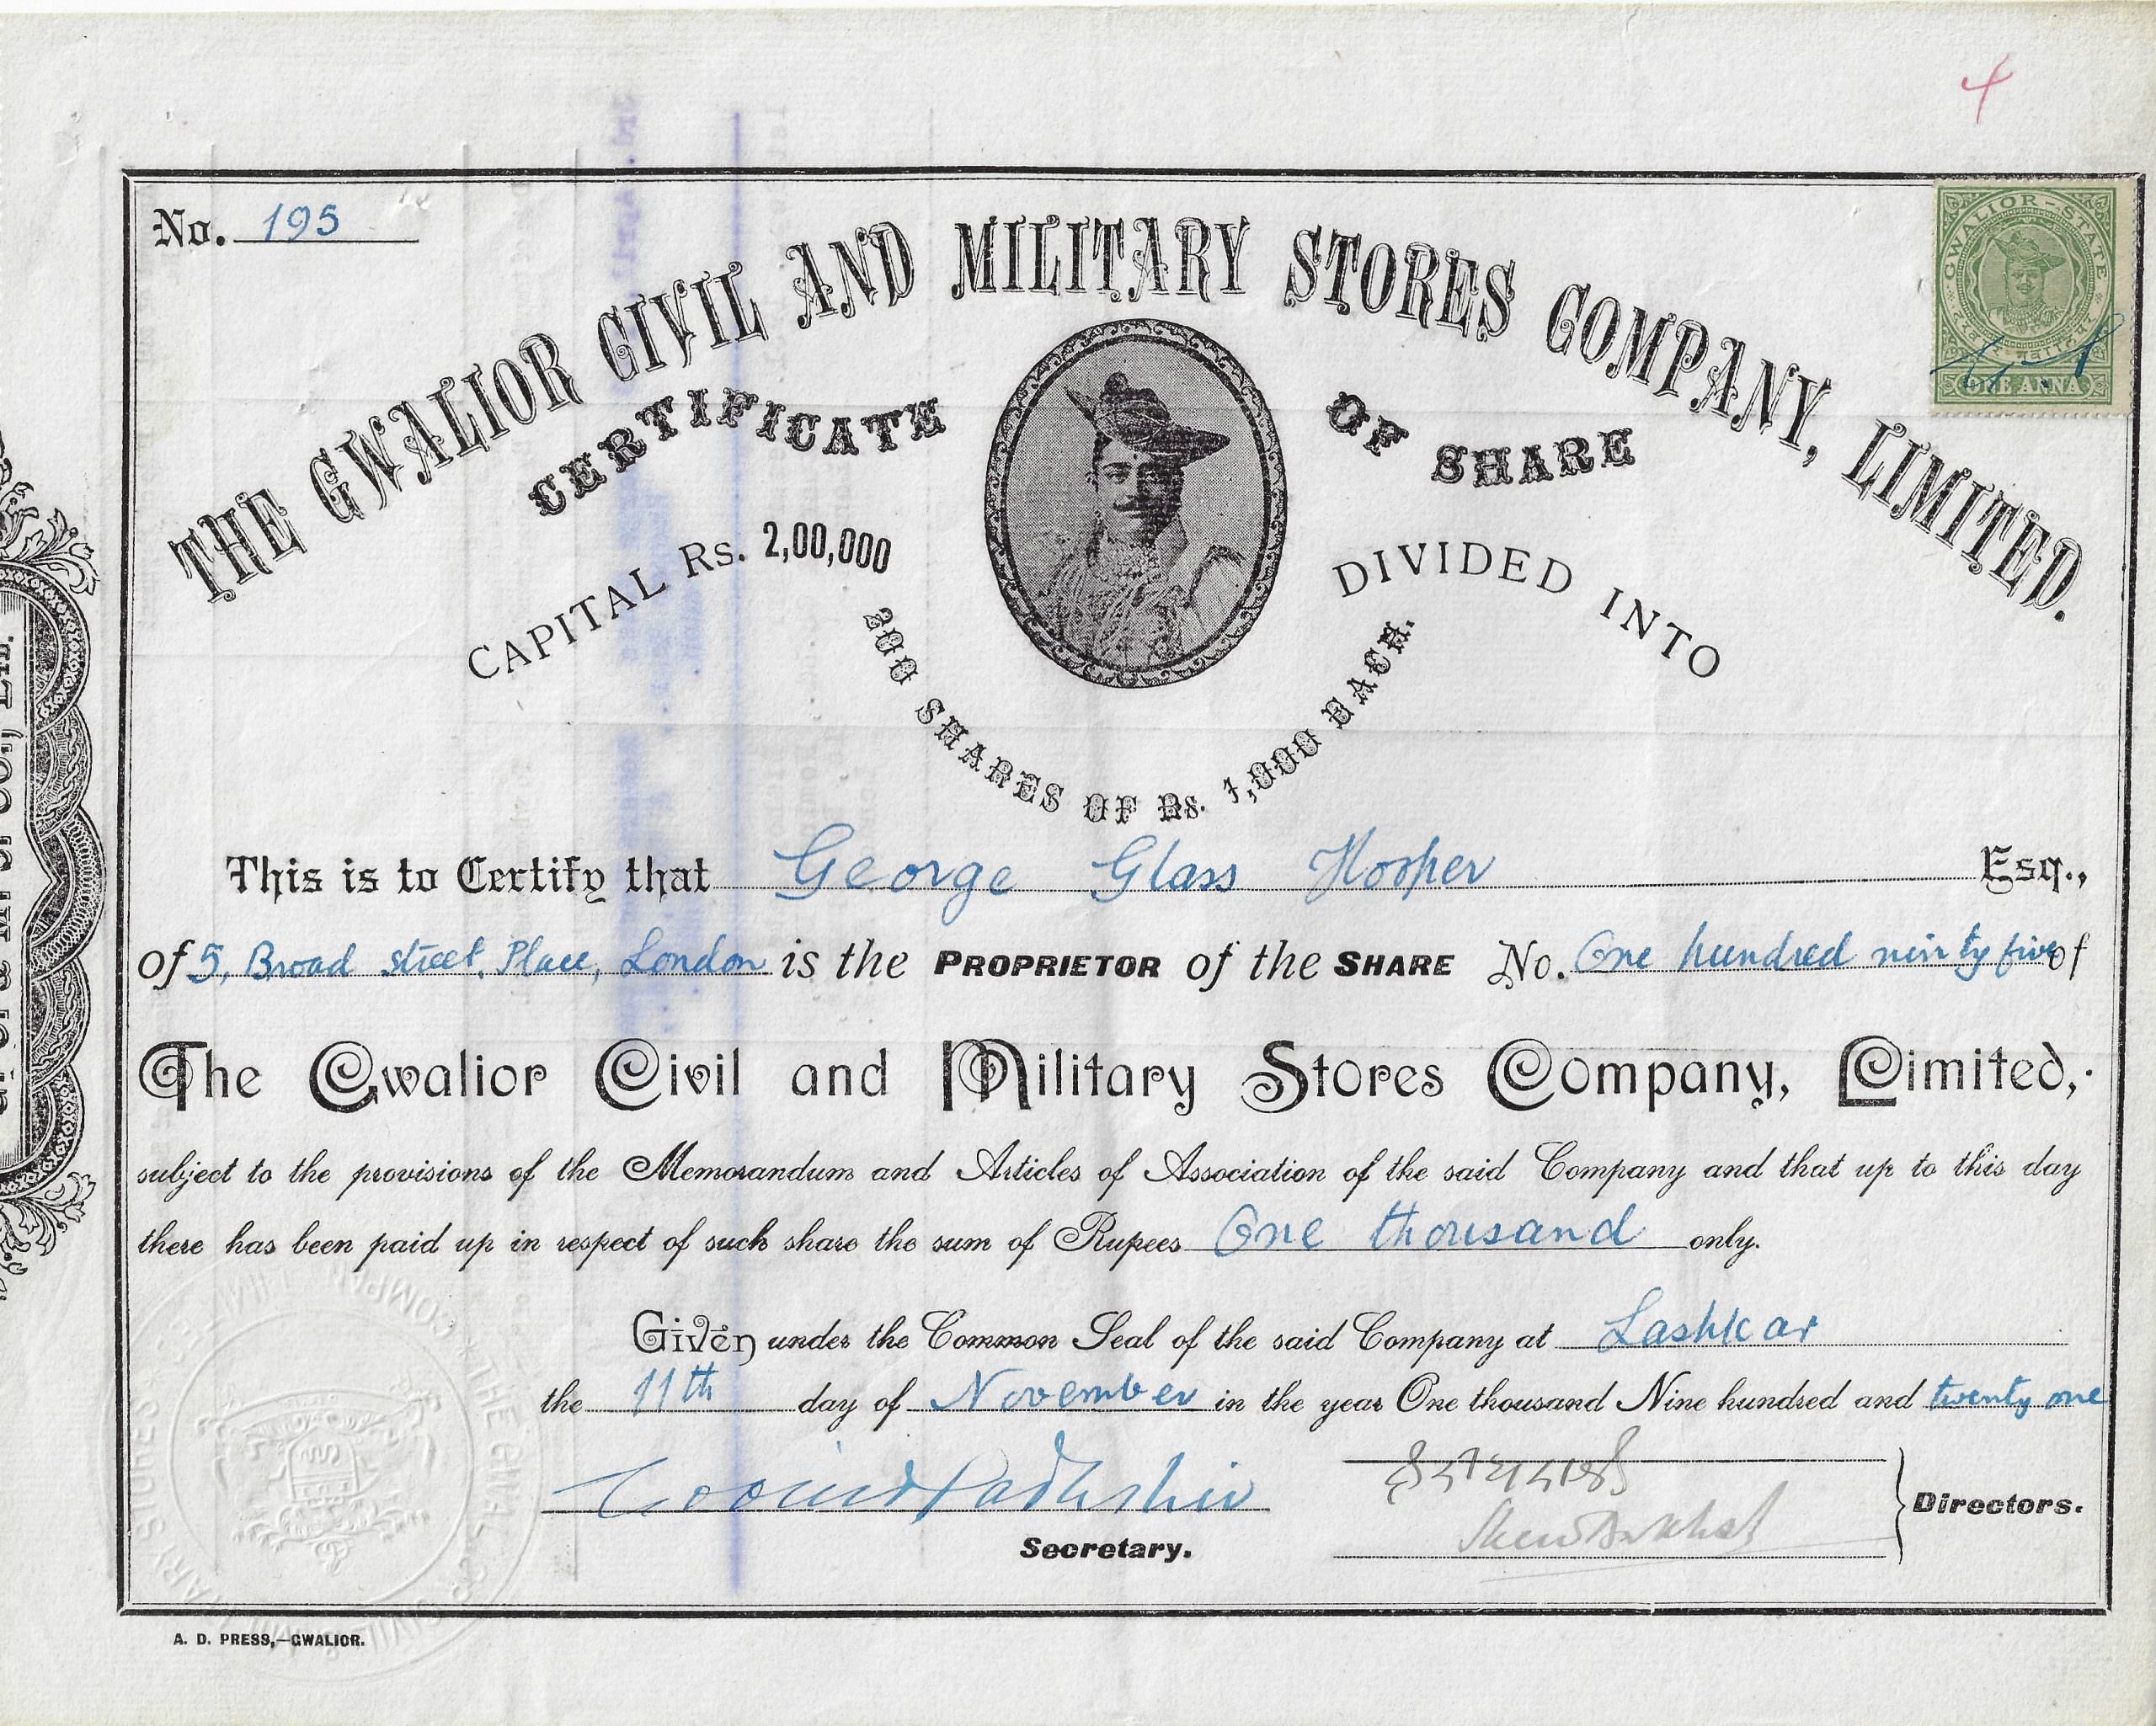 4
No. 195
GWALIOR-STATE
ONE ANNA
THE GWALIOR CIVIL AND MILITARY STORES COMPANY, LIMITED.
CERTIFICATE OF SHARE
CAPITAL Rs. 2,00,000 DIVIDED INTO
200 SHARES OF Rs. 1,000 EACH.
This is to Certify that George Glass Hooper Esq.,
of 5, Broad street. Place, London is the PROPRIETOR of the SHARE No. One hundred ninty five of
The Gwalior Civil and Military Stores Company, Limited,
subject to the provisions of the Memorandum and Articles of Association of the said Company and that up to this day
there has been paid up in respect of such share the sum of Rupees One thousand only.
Given under the Common Seal of the said Company at Lashkar
the 11th day of November in the year One thousand Nine hundred and twenty one
Secretary.
Directors.
A. D. PRESS,—GWALIOR.